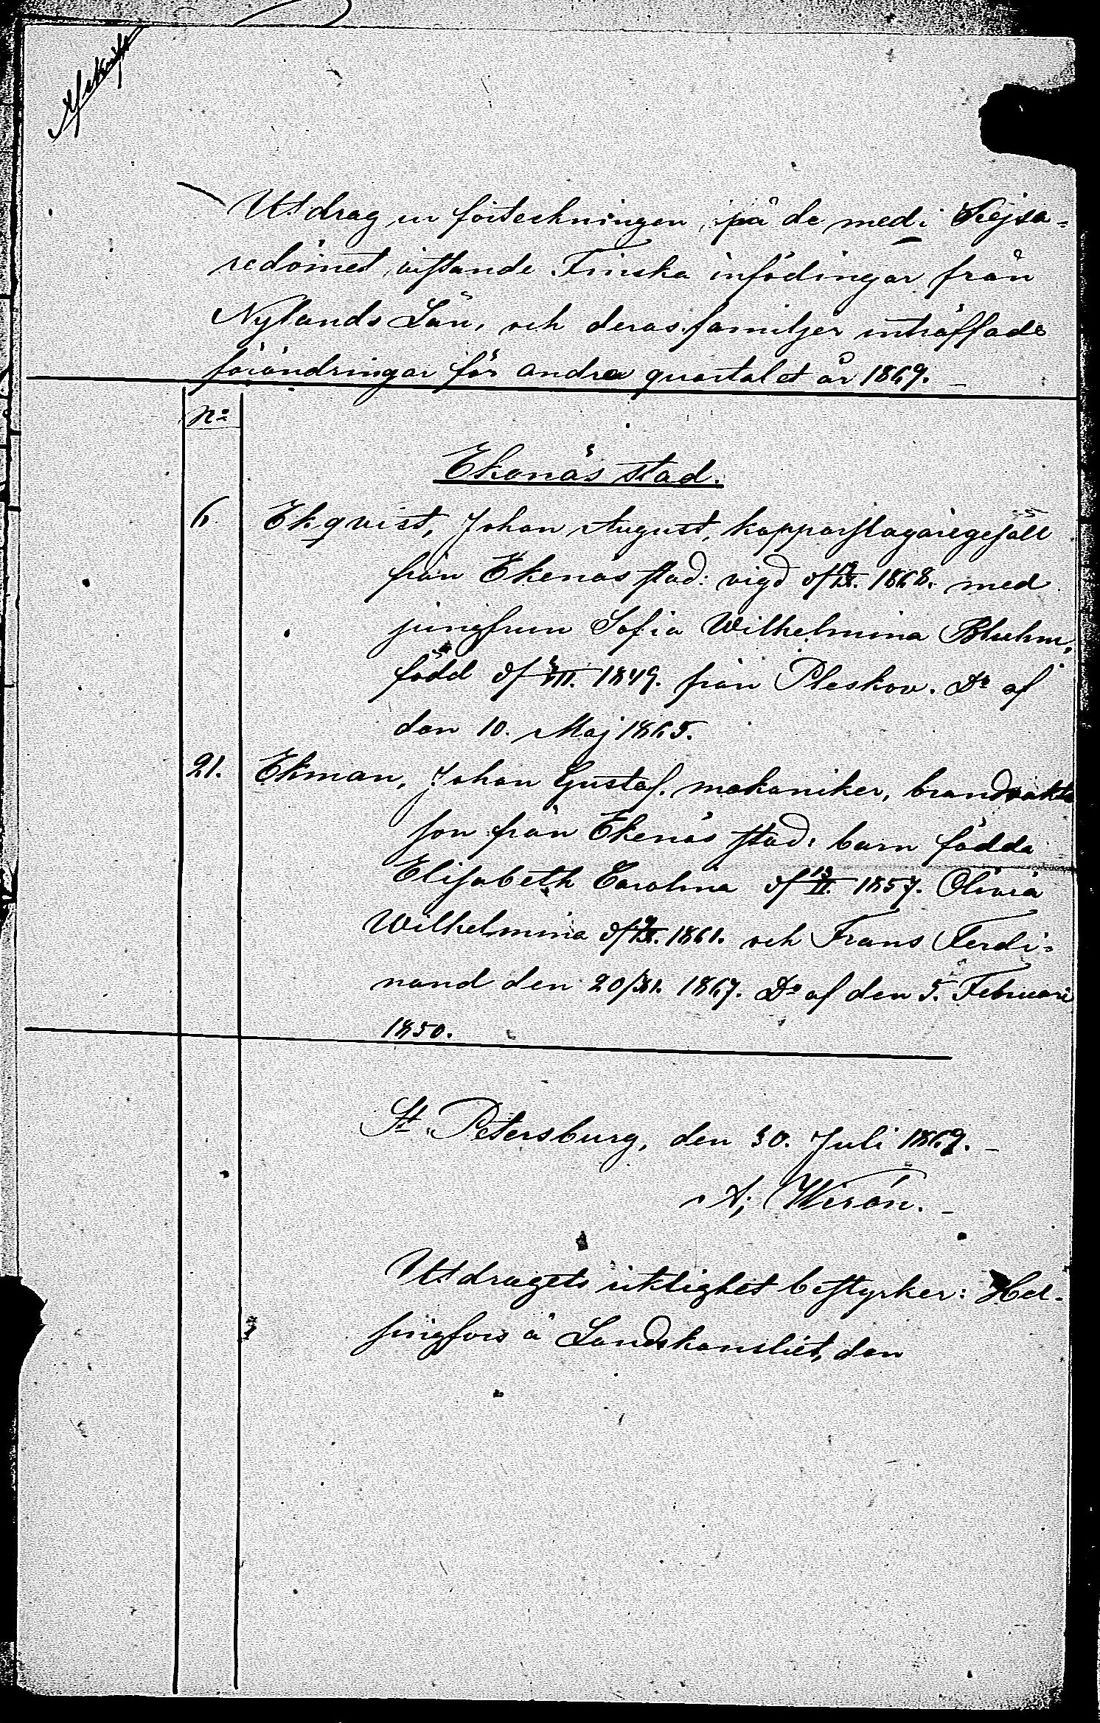 Afskrift
Utdrag ur förteckningen på de med i Kejsa=
redömet vistande Finska infödingar från
Nylands Län, och deras familjer inträffade
förändringar för andra quartalet år 1869.
No
Ekenäs stad.
6. Ekqvist, Johan August, kopparslagaregesäll
från Ekenäs stad: vigd d. IX. 1868. med
jungfrun Sofia Wilhelmina Bluhm,
född d. III. 1849. från Pleskov. Do af
den 10. Maj 1865.
21. Ekman, Johan Gustaf. mekaniker, brandvakts
son från Ekenäs stad: barn födda
Elisabeth Carolina d. 13/II. 1857. Olivia
Wilhelmina d. 9/IX. 1861. och Frans Ferdi=
nand den 20/XI. 1867. Do af den 5. Februari
1850.
St. Petersburg, den 30. Juli 1869.
A; Wirén.
Utdragets riktighet bestyrker: Hel-
singfors å Landskansliet, den